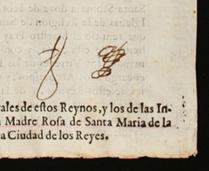 ales de estos Reynos, y los de las In-
Madre Rosa de Santa Maria de la
a Ciudad de los Reyes.